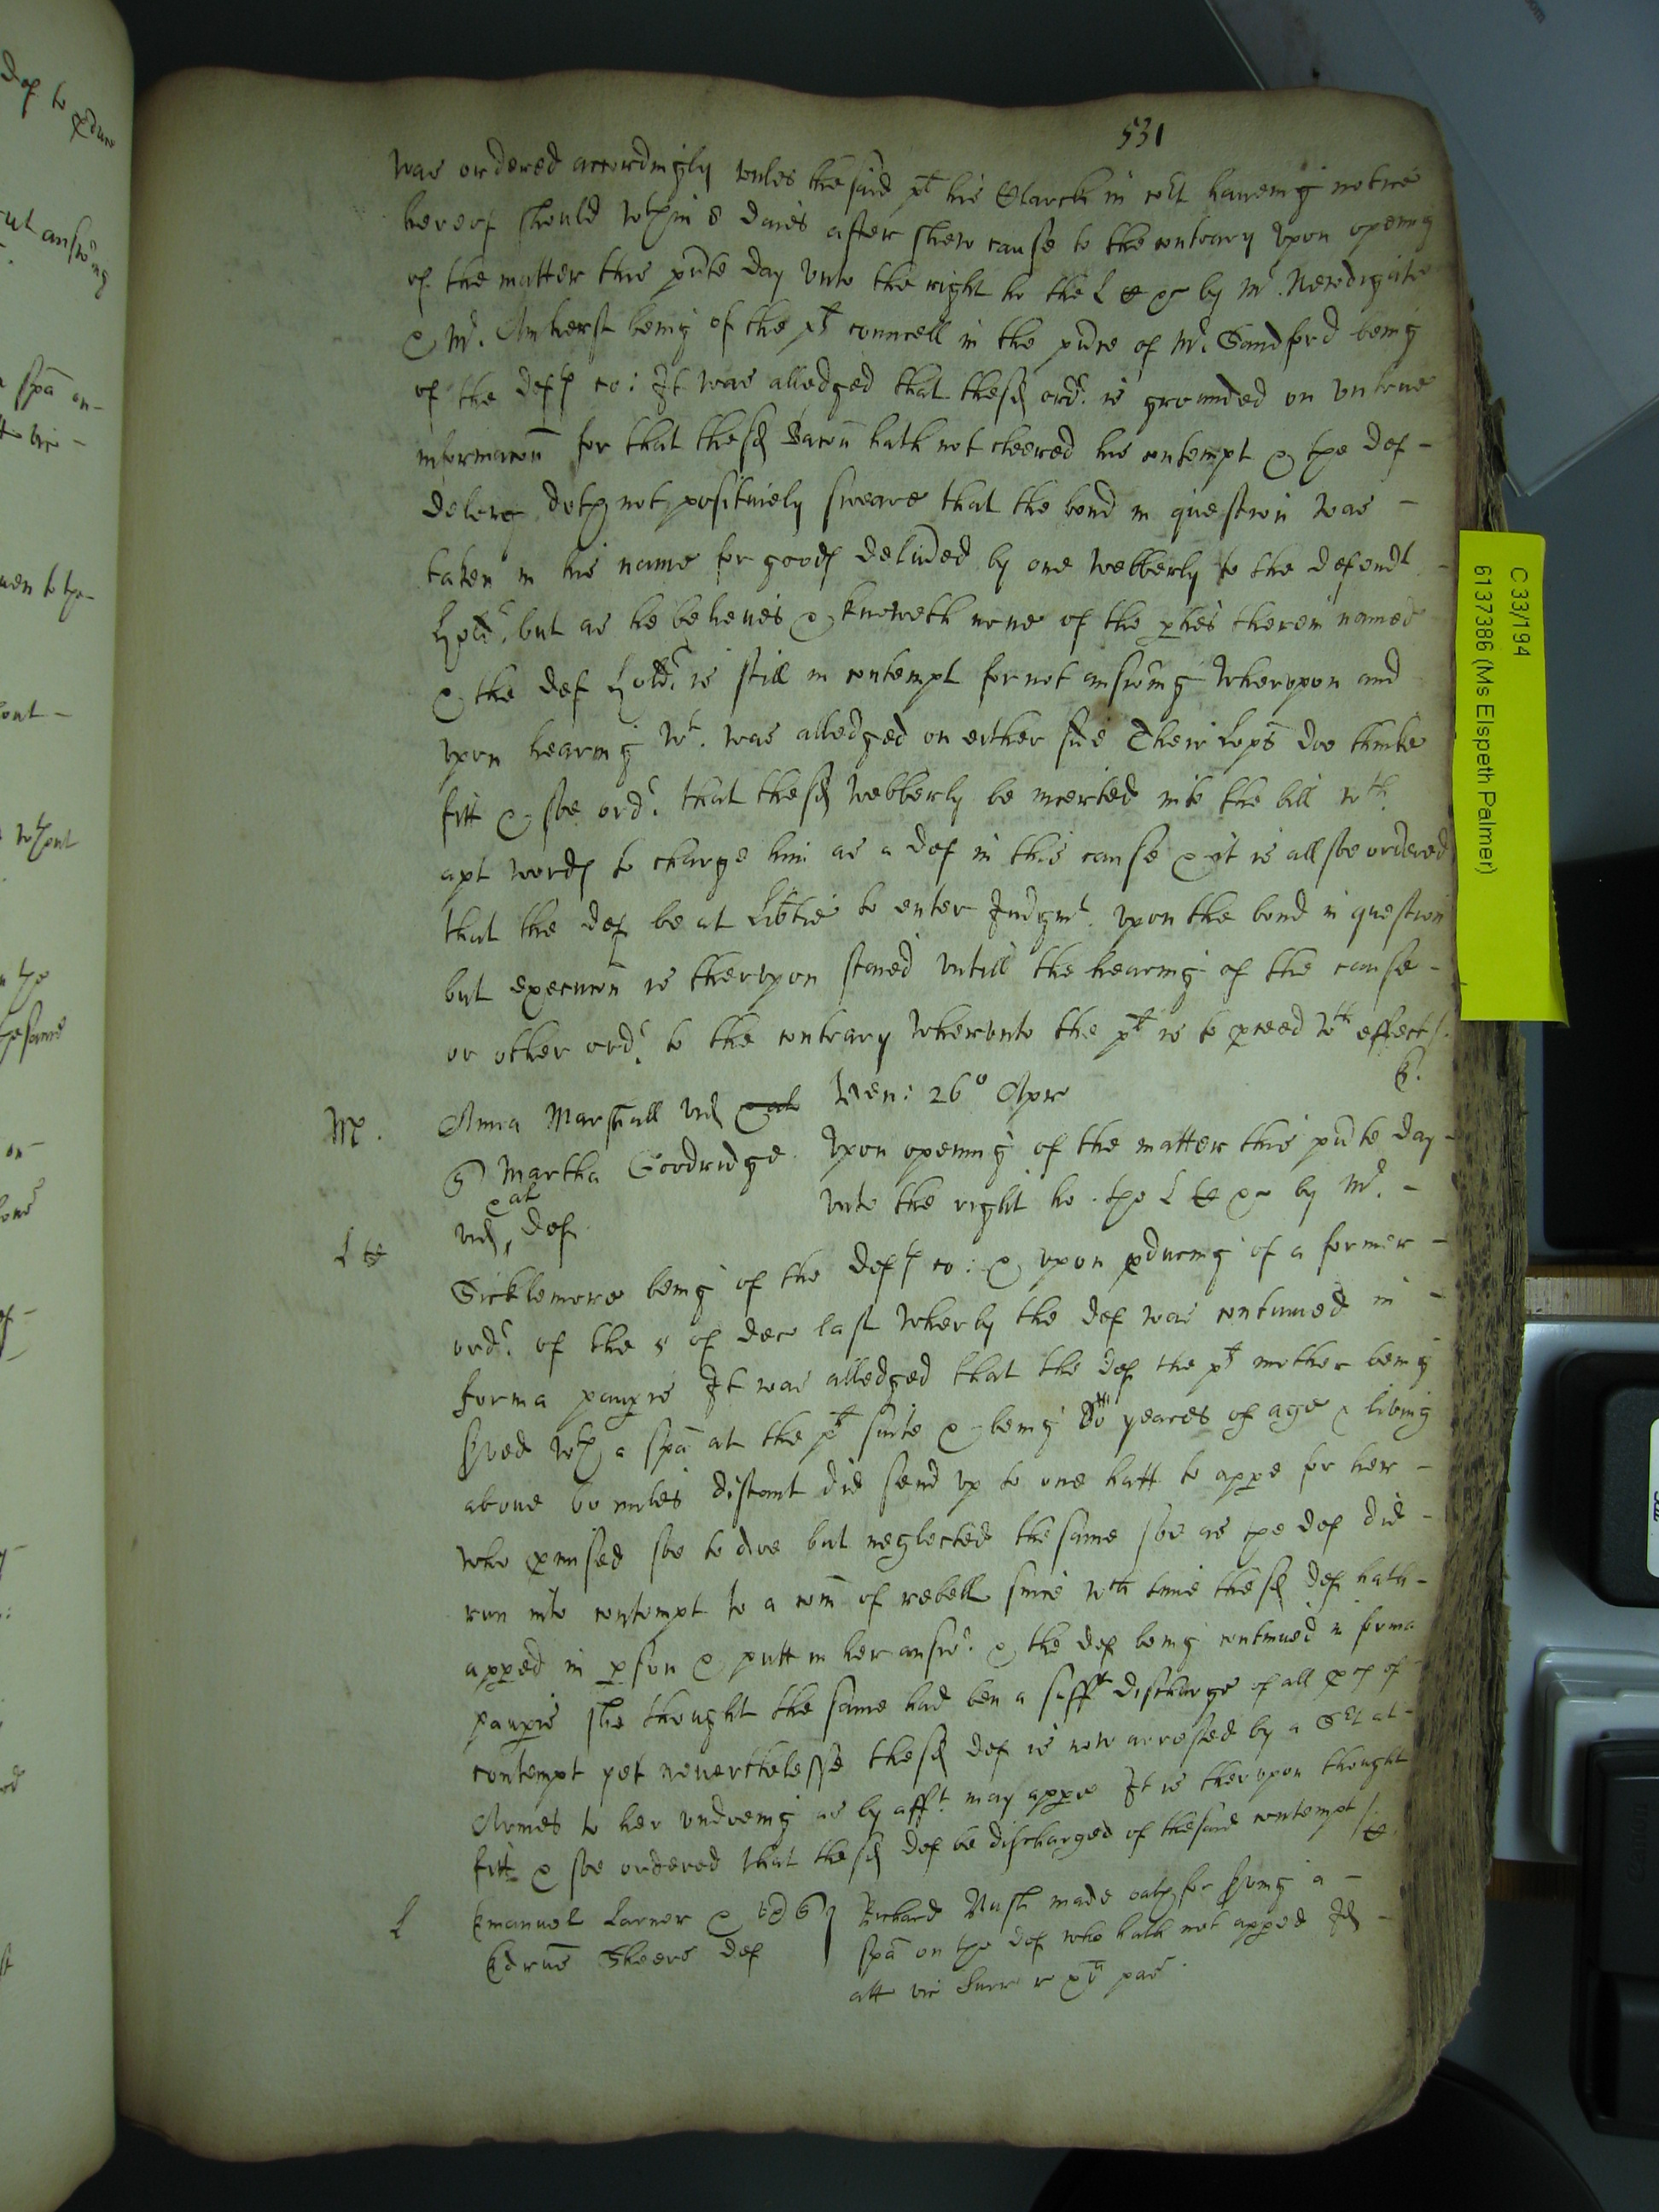 531
was ordered accordingly vnles the said plt his Clarck in co:rt haueing notice
hereof should wthin 8 daies after shew cause to the contrary Vpon opening
of the matter this pnte day vnto the right ho the L by Mr. Newdigate
& Mr. Amherst being of the plts councell in the pnce of Mr. Sandford being
of the defts co: It was alledged that thesd ordr. is grounded on vntrue
informacon for that thesd Bacon hath not cleered his contempt & the def
doth not positiuely sweare that the bond in question was
taken in his name for goods deliued by one Webberly to the defendt
but as he beleiues & knoweth none of the pties therein named
& the def is still in contempt for not answing Wherevpon and
vpon hearing wt. was alledged on either side Their Lopps doe thinke
fitt & soe ordr. that thesd Webberly be incerted into the bill wth.
apt words to charge him as a def in this cause & it is allsoe ordered
that the def be at libtie to enter Judgmt. vpon the bond in question
but execucon is thervpon staied vntill the hearing of the cause
or other ordr. to the contrary Whervnto the plt is to pceed wth effect/.
Anna Marshall vid Ven: 26o Apr
Martha Goodridge Vpon opening of the matter this pnte day
vid & al def vnto the right ho. the L by Mr.
Sicklemore being of the defts co: & vpon pduceing of a former
ordr. of the 5 of dec last Wherby the def was continued in
forma paupis It was alledged that the def the plts mother being
serued wth a spa at the plts suite & being 80tie yeares of age & liveing
aboue 60 miles distant did send vp to one hatt to appe for her
who pmised soe to doe but neglected the same soe as the def did
run into contempt to a com of rebell since wch time thesd def hath
apped in pson & putt in her answr. & the def being continued in forma
paupis she thought the same had ben a sufft discharge of all pces of
contempt yet neuerthelesse thesd def is now arrested by a Srt at
Armes to her vndoeing as by afft. may appe It is thervpon thought
fitt & soe ordered that thesd def be discharged of thesaid contempt/.
L Emanuel Larner & Richard Nash made oath for seruing a
Skeers def spa on the def who hath not apped
C 33/194
6137386 (Ms Elspeth Palmer)